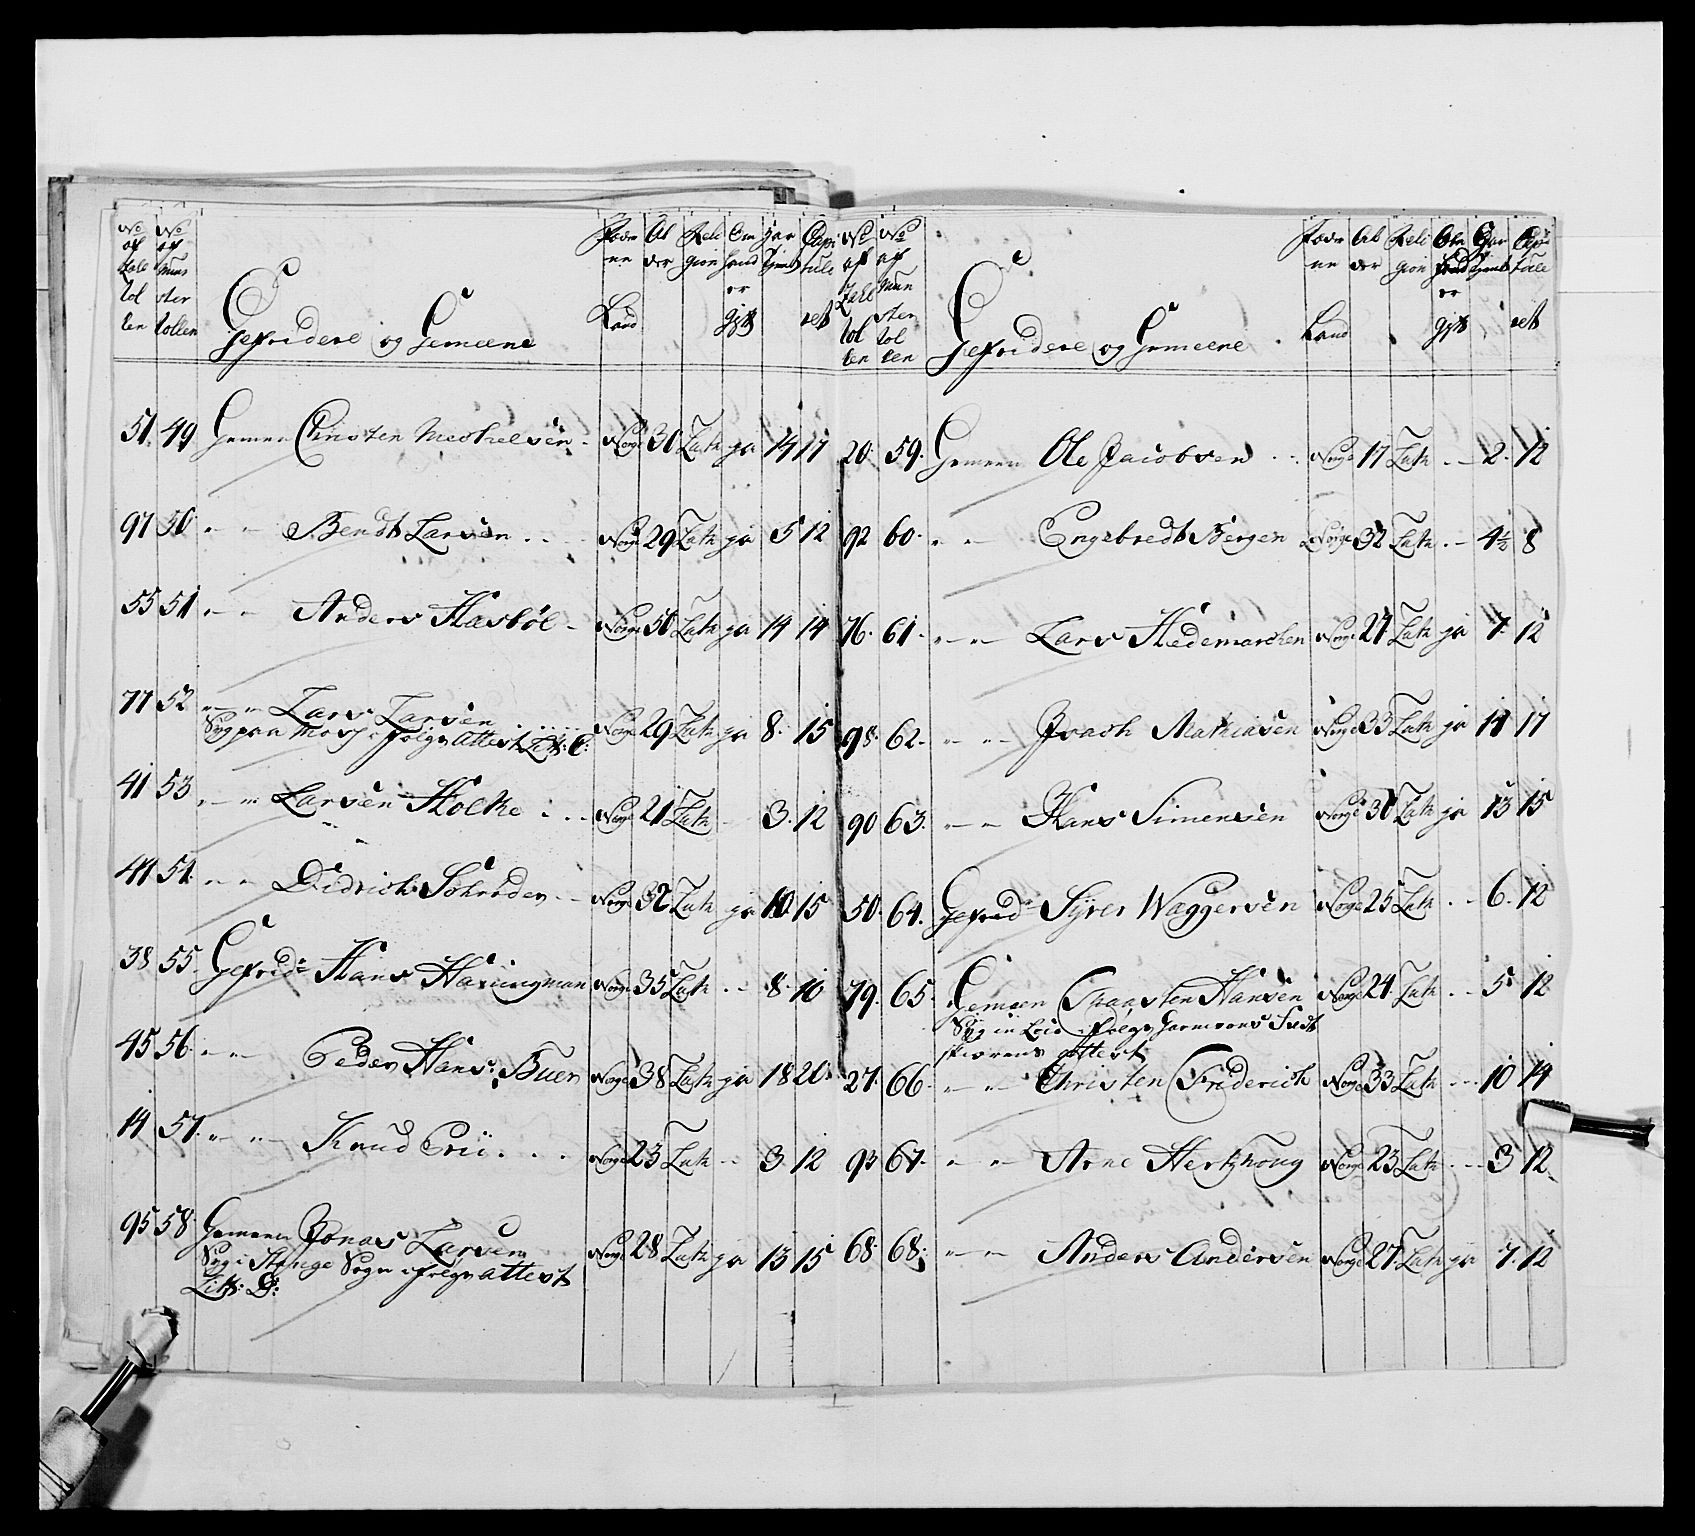 No af Rullen No af Munster Rollen Gefridere og Gemeene Føde Land Alder Religion Om hand er gift Har tjent Capituleret
51. 49 Gemeen Christen Michelsen Norge 30 Luth ja 14 17
97 50 " " Bendt Larsen Norge 29 Luth ja 5 12
55 51 " " Anders Hasbøl Norge 50 Luth ja 14 14
77 52 " " Lars Larsen Norge 29 Luth ja 8 15
Syg paa Moss i følge Attest Litr: C:
41 53 " " Larsen Holke Norge 21 Luth 3 12
41 54 " " Didrich Schrøder Norge 32 Luth ja 10 15
38 55 Gefrid: Hans Haningman Norge 35 Luth 8 10
45 56 " " Peder Hans: Buer Norge 38 Luth ja 18 20
14 57 " " Knud Erii Norge 23 Luth 3 12
95 58 Gemeen Jonas Larsen Norge 28 Luth ja 13 15
Syg i Stange Sogn i følge Attest
Litr: D:
No af Rullen No af Munster Rollen Gefridere og Gemeene Føde Land Alder Religion Om hand er gift Har tjent Capituleret
20 59 Gemeen Ole Jacobsen Norge 17 Luth 2 12
92 60 " " Engebredt Bergen Norge 32 Luth 4½ 8
76 61 " " Lars Hedemarchen Norge 27 Luth ja 7 12
98 62 " " Isach Mathiasen Norge 33 Luth ja 14 17
90 63 " " Hans Simensen Norge 30 Luth ja 13 15
50 64 Gefrid: Syver Waggersen Norge 25 Luth 6 12
79 65 Gemeen Thaasten Hansen Norge 24 Luth 5 12
Syg i følge Attest
27 66 " " Christen Friderich Norge 33 Luth 10 14
93 67 " " Arne Hertzhoug Norge 23 Luth 3 12
68 68 " " Anders Andersen Norge 27 Luth ja 7 12